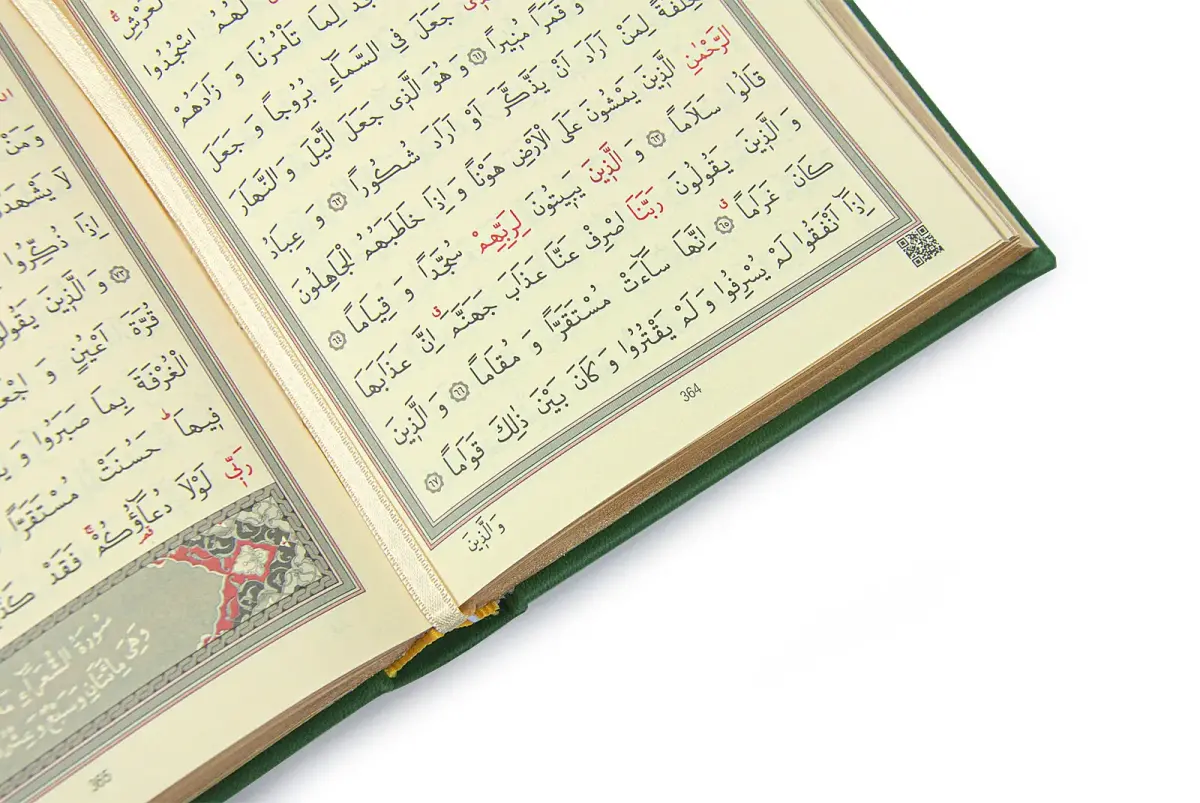 الْعَرْشِ
لَهُمُ اسْجُدُوا
لِمَا تَأْمُرُنَا وَ زَادَهُمْ
جَعَلَ فِي السَّمَٓاءِ بُرُوجاً وَ جَعَلَ
وَ قَمَراً مُنٖيراً ٦١ وَ هُوَ الَّذٖى جَعَلَ الَّيْلَ وَ النَّهَارَ
خِلْفَةً لِمَنْ اَرَادَ اَنْ يَذَّكَّرَ اَوْ اَرَادَ شُكُوراً ٦٢ وَ عِبَادُ
الرَّحْمٰنِ الَّذٖينَ يَمْشُونَ عَلَى الْاَرْضِ هَوْناً وَ اِذَا خَاطَبَهُمُ الْجَاهِلُونَ
قَالُوا سَلَاماً ٦٣ وَ الَّذٖينَ يَبٖيتُونَ لِرَبِّهِمْ سُجَّداً وَ قِيَاماً ٦٤
وَ الَّذٖينَ يَقُولُونَ رَبَّنَا اصْرِفْ عَنَّا عَذَابَ جَهَنَّمَ ق اِنَّ عَذَابَهَا
كَانَ غَرَاماً ق ٦٥ اِنَّهَا سَٓاءَتْ مُسْتَقَرًّا وَ مُقَاماً ٦٦ وَ الَّذٖينَ
اِذَٓا اَنْفَقُوا لَمْ يُسْرِفُوا وَ لَمْ يَقْتُرُوا وَ كَانَ بَيْنَ ذٰلِكَ قَوَاماً ٦٧
364
وَ الَّذٖينَ
وَمَنْ
لَا يَشْهَدُ
اِذَا ذُكِّرُوا
٧٣ وَ الَّذٖينَ يَقُولُو
قُرَّةَ اَعْيُنٍ وَ اجْعَ
الْغُرْفَةَ بِمَا صَبَرُوا وَ
فٖيهَا حَسُنَتْ مُسْتَقَرًّا
رَبّٖي لَوْلَا دُعَٓاؤُكُمْ فَقَدْ كَذَّ
سُورَةُ الشُّعَرَاءِ
وَهِيَ مِائَتَانِ وَسَبْعٌ وَعِشْرُ
365